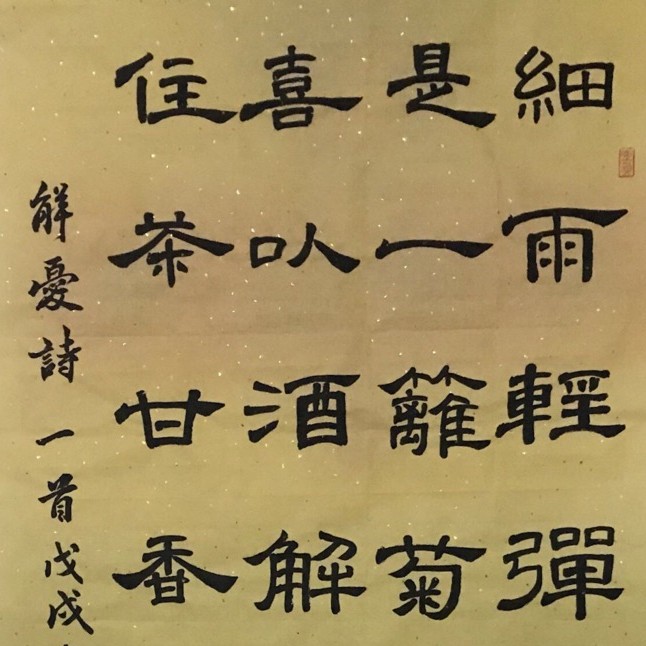 細雨輕彈
是一籬菊
喜㕥酒解
住茶甘香
解憂詩一首戊戌